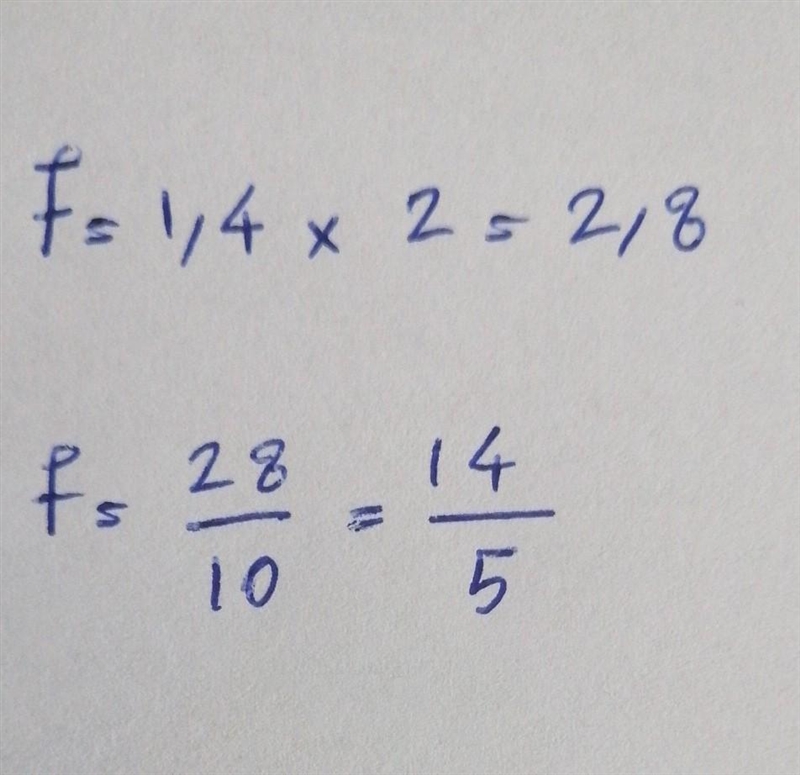 F = 1,4 x 2 = 2,8
F = 28/10 = 14/5